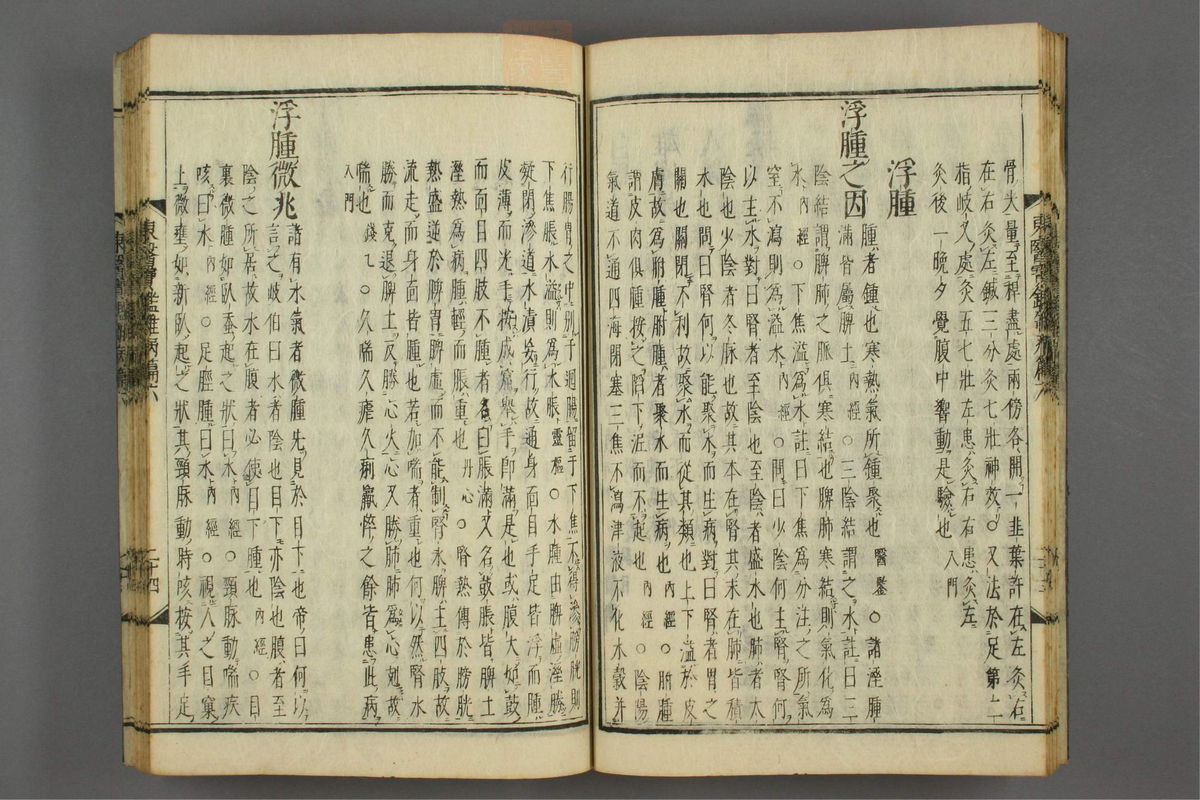 骨大量至稈盡處兩傍各開一韭葉許在左灸右
在右灸左鍼三分灸七壯神效○又法於足第二
指歧叉處灸五七壯左患灸右右患灸左
灸後一晩夕覺腹中響動是驗也入門
浮腫
浮腫之因
腫者鍾也寒熱氣所鍾聚也醫鑒○諸溼腫
滿皆屬脾土內經○三陰結謂之水註曰三
陰結謂脾肺之脈俱寒結也脾肺寒結則氣化爲
水內經○下焦溢爲水註曰下焦爲分注之所氣
窒不瀉則爲溢水內經○問曰少陰何主腎腎何
以主水對曰腎者至陰也至陰者盛水也肺者太
陰也少陰者冬脈也故其本在腎其末在肺皆積
水也問曰腎何以能聚水而生病對曰腎者胃之
關也關閉不利故聚水而從其類也上下溢於皮
膚故爲胕腫胕腫者聚水而生病也內經○胕腫
謂皮肉俱腫按之陷下泥而不起也內經○陰陽
氣道不通四海閉塞三焦不瀉津液不化水穀并
行腸胃之中別于迴腸留于下焦不得滲膀胱則
下焦脹水溢則爲水脹靈樞○水腫由脾虛溼勝
凝閉滲道水漬妄行故通身面目手足皆浮而腫
皮薄而光手按成窟舉手卽滿是也或腹大如鼓
而面目四肢不腫者名曰脹滿又名鼓脹皆脾土
溼熱爲病腫輕而脹重也丹心○腎熱傳於膀胱
熱盛逆於脾胃脾虛而不能制腎水脾主四肢故
流走而身面皆腫也若加喘者重也何以然腎水
勝而克退脾土反勝心火心又勝肺肺爲心剋故
喘也錢乙○久喘久瘧久痢羸悴之餘皆患此病
入門
浮腫微兆
諸有水氣者微腫先見於目下也帝曰何以
言之岐伯曰水者陰也目下亦陰也腹者至
陰之所居故水在腹者必使目下腫也內經○目
裏微腫如臥蚕起之狀曰水內經○頸脉動喘疾
咳曰水內經○足脛腫曰水內經○視人之目窠
上微壅如新臥起之狀其頸脉動時咳按其手足
東醫寶鑑雜病篇六
二十四